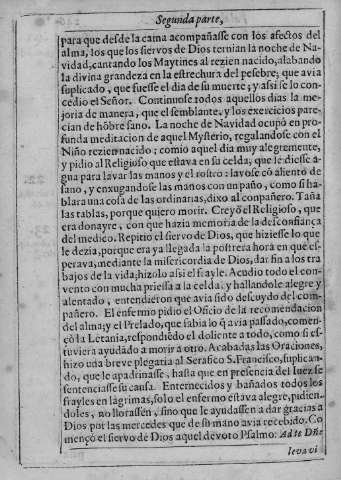 Segunda parte,
para que desde la cama acompañasse con los afectos del
alma, los que los siervos de Dios ternian la noche de Na-
vidad, cantando los Maytines al rezien nacido, alabando
la divina grandeza en la estrechura del pesebre; que avia
suplicado, que fuesse el dia de su muerte; y assi se lo con-
cedio el Señor. Continuose todos aquellos dias la me-
joria de manera, que el semblante, y los exercicios pare-
cian de hõbre sano. La noche de Navidad ocupò en pro-
funda meditacion de aquel Mysterio, regalandose con el
Niño rezien nacido; comio aquel dia muy alegremente,
y pidio al Religioso que estava en su celda, que le diesse a-
gua para lavar las manos y el rostro: lavose cõ aliento de
sano, y enxugandose las manos con un paño, como si ha-
blara una cosa de las ordinarias, dixo al cõpañero. Taña
las tablas, porque quiero morir. Creyò el Religioso, que
era donayre, con que hazia memoria de la desconfiança
del medico. Repitio el siervo de Dios, que hiziesse lo que
le dezia, porque era ya llegada la postrera hora en que es-
perava, mediante la misericordia de Dios, dar fin a los tra
bajos de la vida; hizolo assi el frayle. Acudio todo el con-
vento con mucha priessa a la celda, y hallandole alegre y
alentado, entendieron que avia sido descuydo del com-
pañero. El enfermo pidio el Oficio de la recomendacion
del alma; y el Prelado, que sabia lo q̃ avia passado, comen-
çò la Letania, respondiẽdo el doliente a todo, como si es-
tuviera ayudado a morir a otro. Acabadas las Oraciones,
hizo una breve plegaria al Serafico S. Francisco, suplican-
do, que le apadrinasse, hasta que en presencia del Iuez se
sentenciasse su causa. Enternecidos y bañados todos los
frayles en lagrimas, solo el enfermo estava alegre, pidien-
doles, no llorassen, sino que le ayudassen a dar gracias a
Dios por las mercedes que de su mano avia recebido. Co
mençò el siervo de Dios aquel devoto Psalmo: Ad te Dñe
levavi